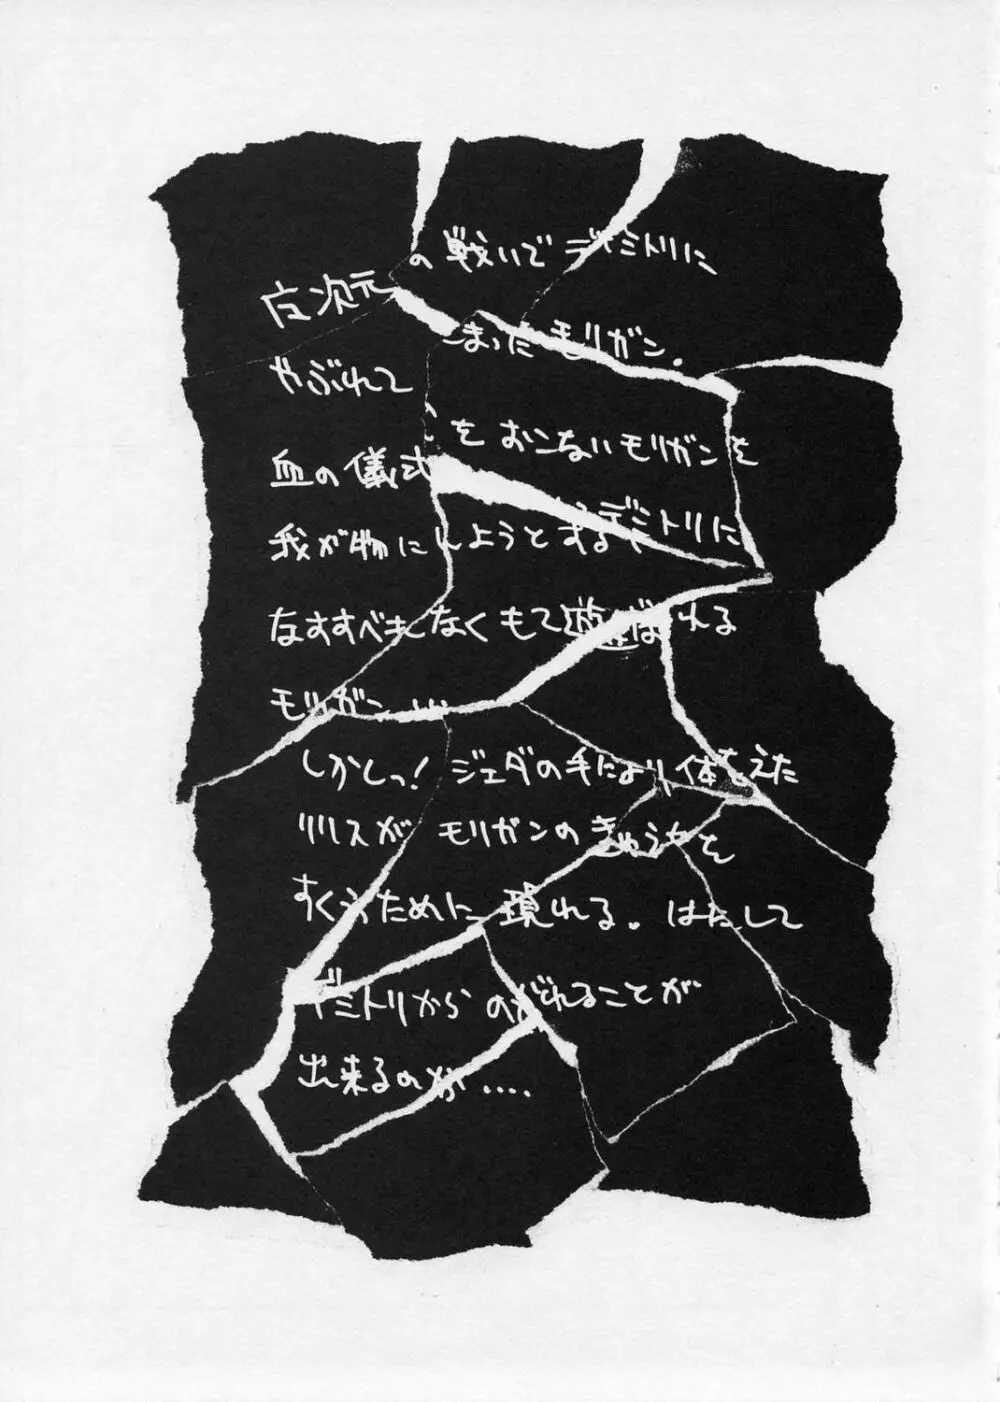 左次元の戦いでデミトリに
やぶれてしまったモリガン。
血の儀式をおこないモリガンを
我が物にしようとするデミトリに
なすすべもなくもて遊ばれる
モリガン….
しかしっ！ジェダの手により体をえた
リリスがモリガンのきゅうちを
すくうために現れる。はたして
デミトリからのがれることが
出来るのか....